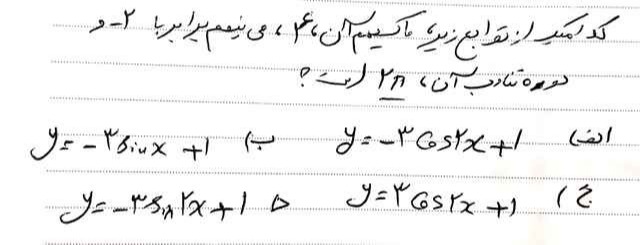 کدامیک از توابع زیر، ماکسیمم آن، ۴، می نیمم برابر با ۲- و
دوره تناوب آن، ۲π است؟
الف) y=-۳Cos۲x+1 ب) y=-۳sinx+1
ج) y=۳Cos۲x+1 د y=-۳Sin۲x+1